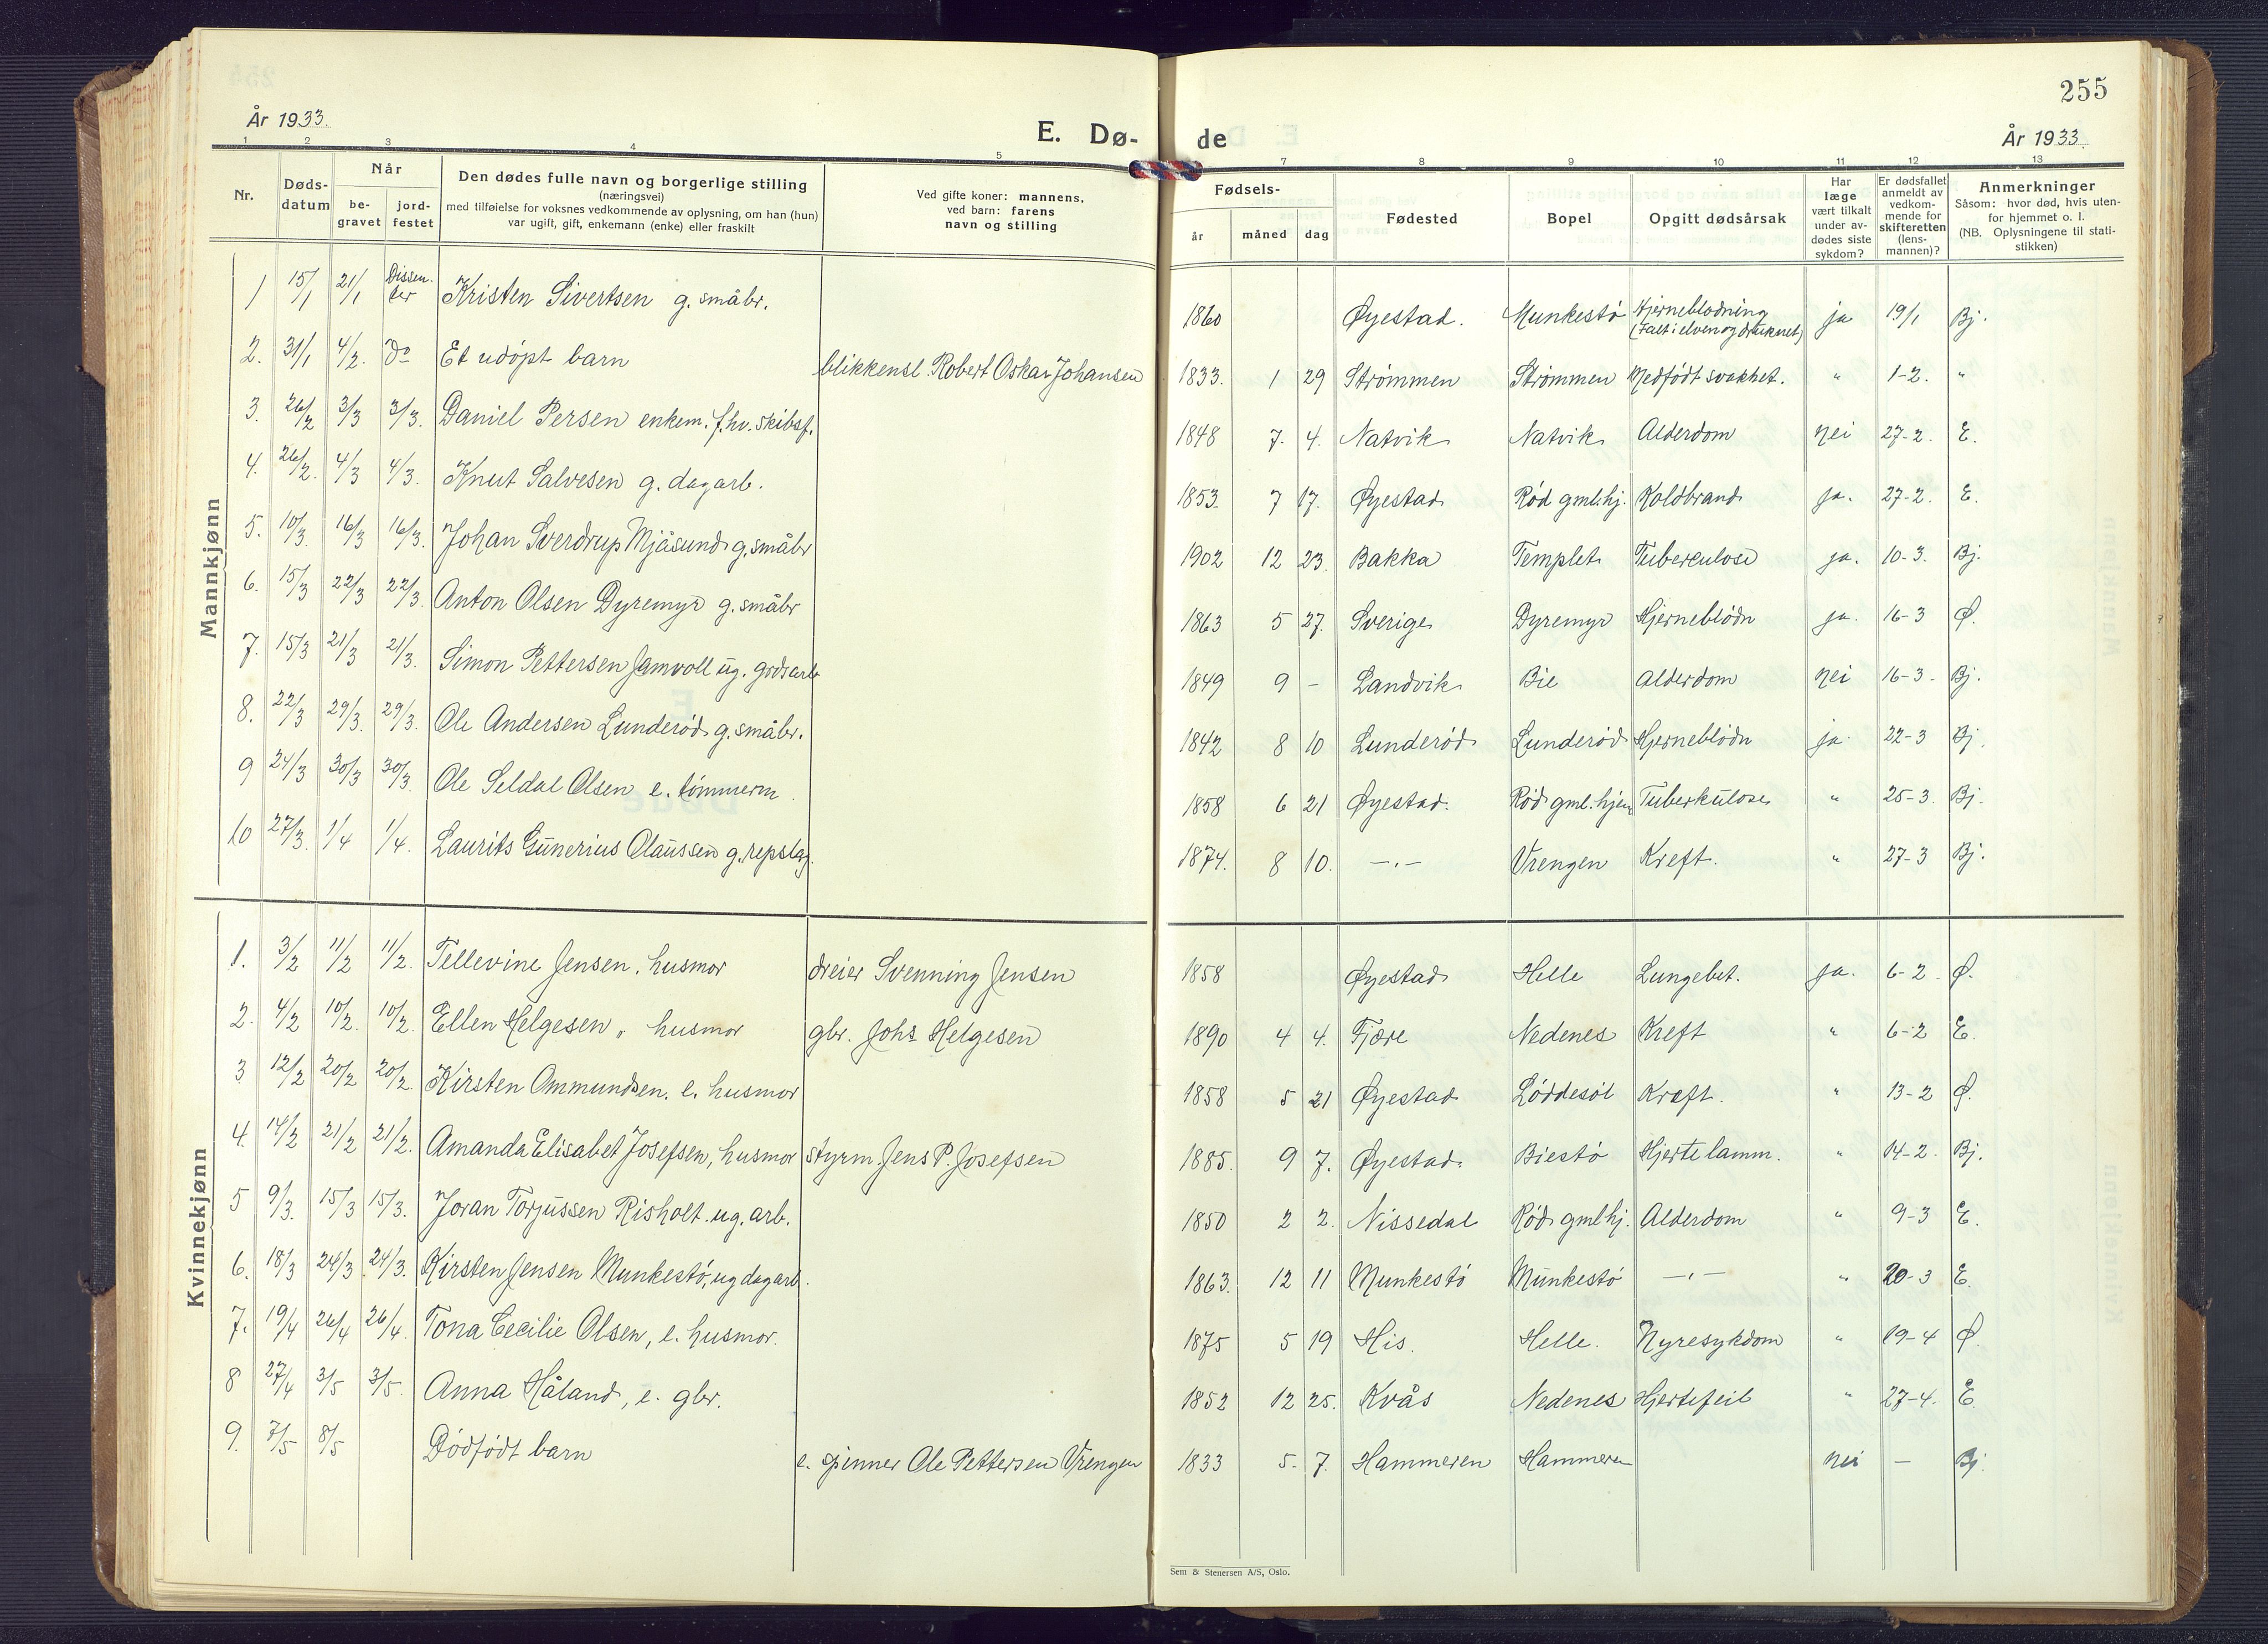 255
År 1933.
E. Dø-
de
År 1933.
1 2 3 4 5 7 8 9 10 11 12 13
Nr.
Døds-
datum
Når
be-
gravet
jord-
festet
Den dødes fulle navn og borgerlige stilling
(næringsvei)
med tilføielse for voksnes vedkommende av oplysning, om han (hun)
var ugift, gift, enkemann (enke) eller fraskilt
Ved gifte koner: mannens,
ved barn: farens
navn og stilling
Fødsels-
år
måned
dag
Fødested
Bopel
Opgitt dødsårsak
Har
læge
vært tilkalt
under av-
dødes siste
sykdom?
Er dødsfallet
anmeldt av
vedkom-
mende for
skifteretten
(lens-
mannen)?
Anmerkninger
Såsom: hvor død, hvis uten-
for hjemmet o. l.
(NB. Oplysningene til stati-
stikken)
Mannkjønn
1 15/1 21/1 Dissen-
ter Kristen Sivertsen g. småbr. 1860 Øyestad. Munkestø Hjerneblødning
(Falt i elven og druknet) ja 19/1 Bj.
2. 31/1 4/2. do Et udøpt barn blikkensl. Robert Oskar Johansen 1833. 1 29 Strømmen Strømmen Medfødt svakhet. " 1-2. "
3. 26/2 3/3 3/3. Daniel Persen enkem. f.hv. skibsf. 1848 7. 4. Natvik Natvik Alderdom nei 27-2. E.
4. 26/2. 4/3 4/3. Knut Salvesen g. dagarb. 1853. 7 17. Øyestad Rød gml.hj. Koldbrand ja. 27-2. E.
5. 10/3. 16/3 16/3. Johan Sverdrup Mjåsund g. småbr 1902 12 23. Bakka Templet Tuberkulose ja. 10-3. Bj.
6. 15/3 22/3 22/3. Anton Olsen Dyremyr g. småbr 1863 5 27. Sverige Dyremyr Hjerneblødn ja. 16-3 Ø.
7. 15/3 21/3 21/3. Simon Pettersen Jamvoll ug. grdsarb 1849 9 - Landvik Bie Alderdom nei 16-3. Bj.
8. 22/3 29/3. 29/3. Ole Andersen Lunderød g. småbr. 1842 8 10 Lunderød Lunderød Hjerneblødn ja 22-3 Bj.
9 24/3 30/3 30/3. Ole Seldal Olsen e. tømmerm. 1858 6 21 Øyestad. Rød gml. hjem Tuberkulose " 25-3. Bj.
10 27/3. 1/4 1/4. Laurits Gunerius Olaussen g. repslag. 1874. 8 10. -"- Vrengen Kreft. " 27-3 Bj.
Kvinnekjønn
1. 3/2 11/2 11/2. Tellevine Jensen. husmor dreier Svenning Jensen 1858 Øyestad Helle Lungebet. ja. 6-2. Ø.
2. 4/2 10/2. 10/2. Ellen Helgesen, husmor gbr. Johs Helgesen 1890 4 4. Fjære Nedenes Kreft " 6-2 E.
3 12/2 20/2 20/2. Kirsten Ommundsen. e. husmor 1858 5 21 Øyestad Løddesøl Kreft. " 13-2 Ø.
4. 14/2 21/2 21/2. Amanda Elisabet Josefsen, husmor styrm. Jens P. Josefsen 1885. 9 7. Øyestad. Biestø Hjertelamm. " 14-2. Bj.
5 9/3. 15/3 15/3. Joran Torjussen Risholt. ug. arb. 1850 2 2. Nissedal Rød gml hj. Alderdom " 9-3 E.
6. 18/3 24/3 24/3. Kirsten Jensen Munkestø, ug dagarb. 1863. 12 11 Munkestø Munkestø -"- " 20-3 E.
7. 19/4 26/4 26/4. Tona Cecilie Olsen, e. husmor. 1875 5 19 His. Helle. Nyresykdom " 19-4 Ø.
8 27/4 3/5 3/5. Anna Håland, e. gbr. 1852 12 25. Kvås Nedenes Hjertefeil " 27-4. E.
9. 7/5 8/5 Dødfødt barn e. spinner Ole Pettersen Vrengen 1833 5. 7. Hammeren Hammeren nei - Bj.
Sem & Stenersen A/S, Oslo.